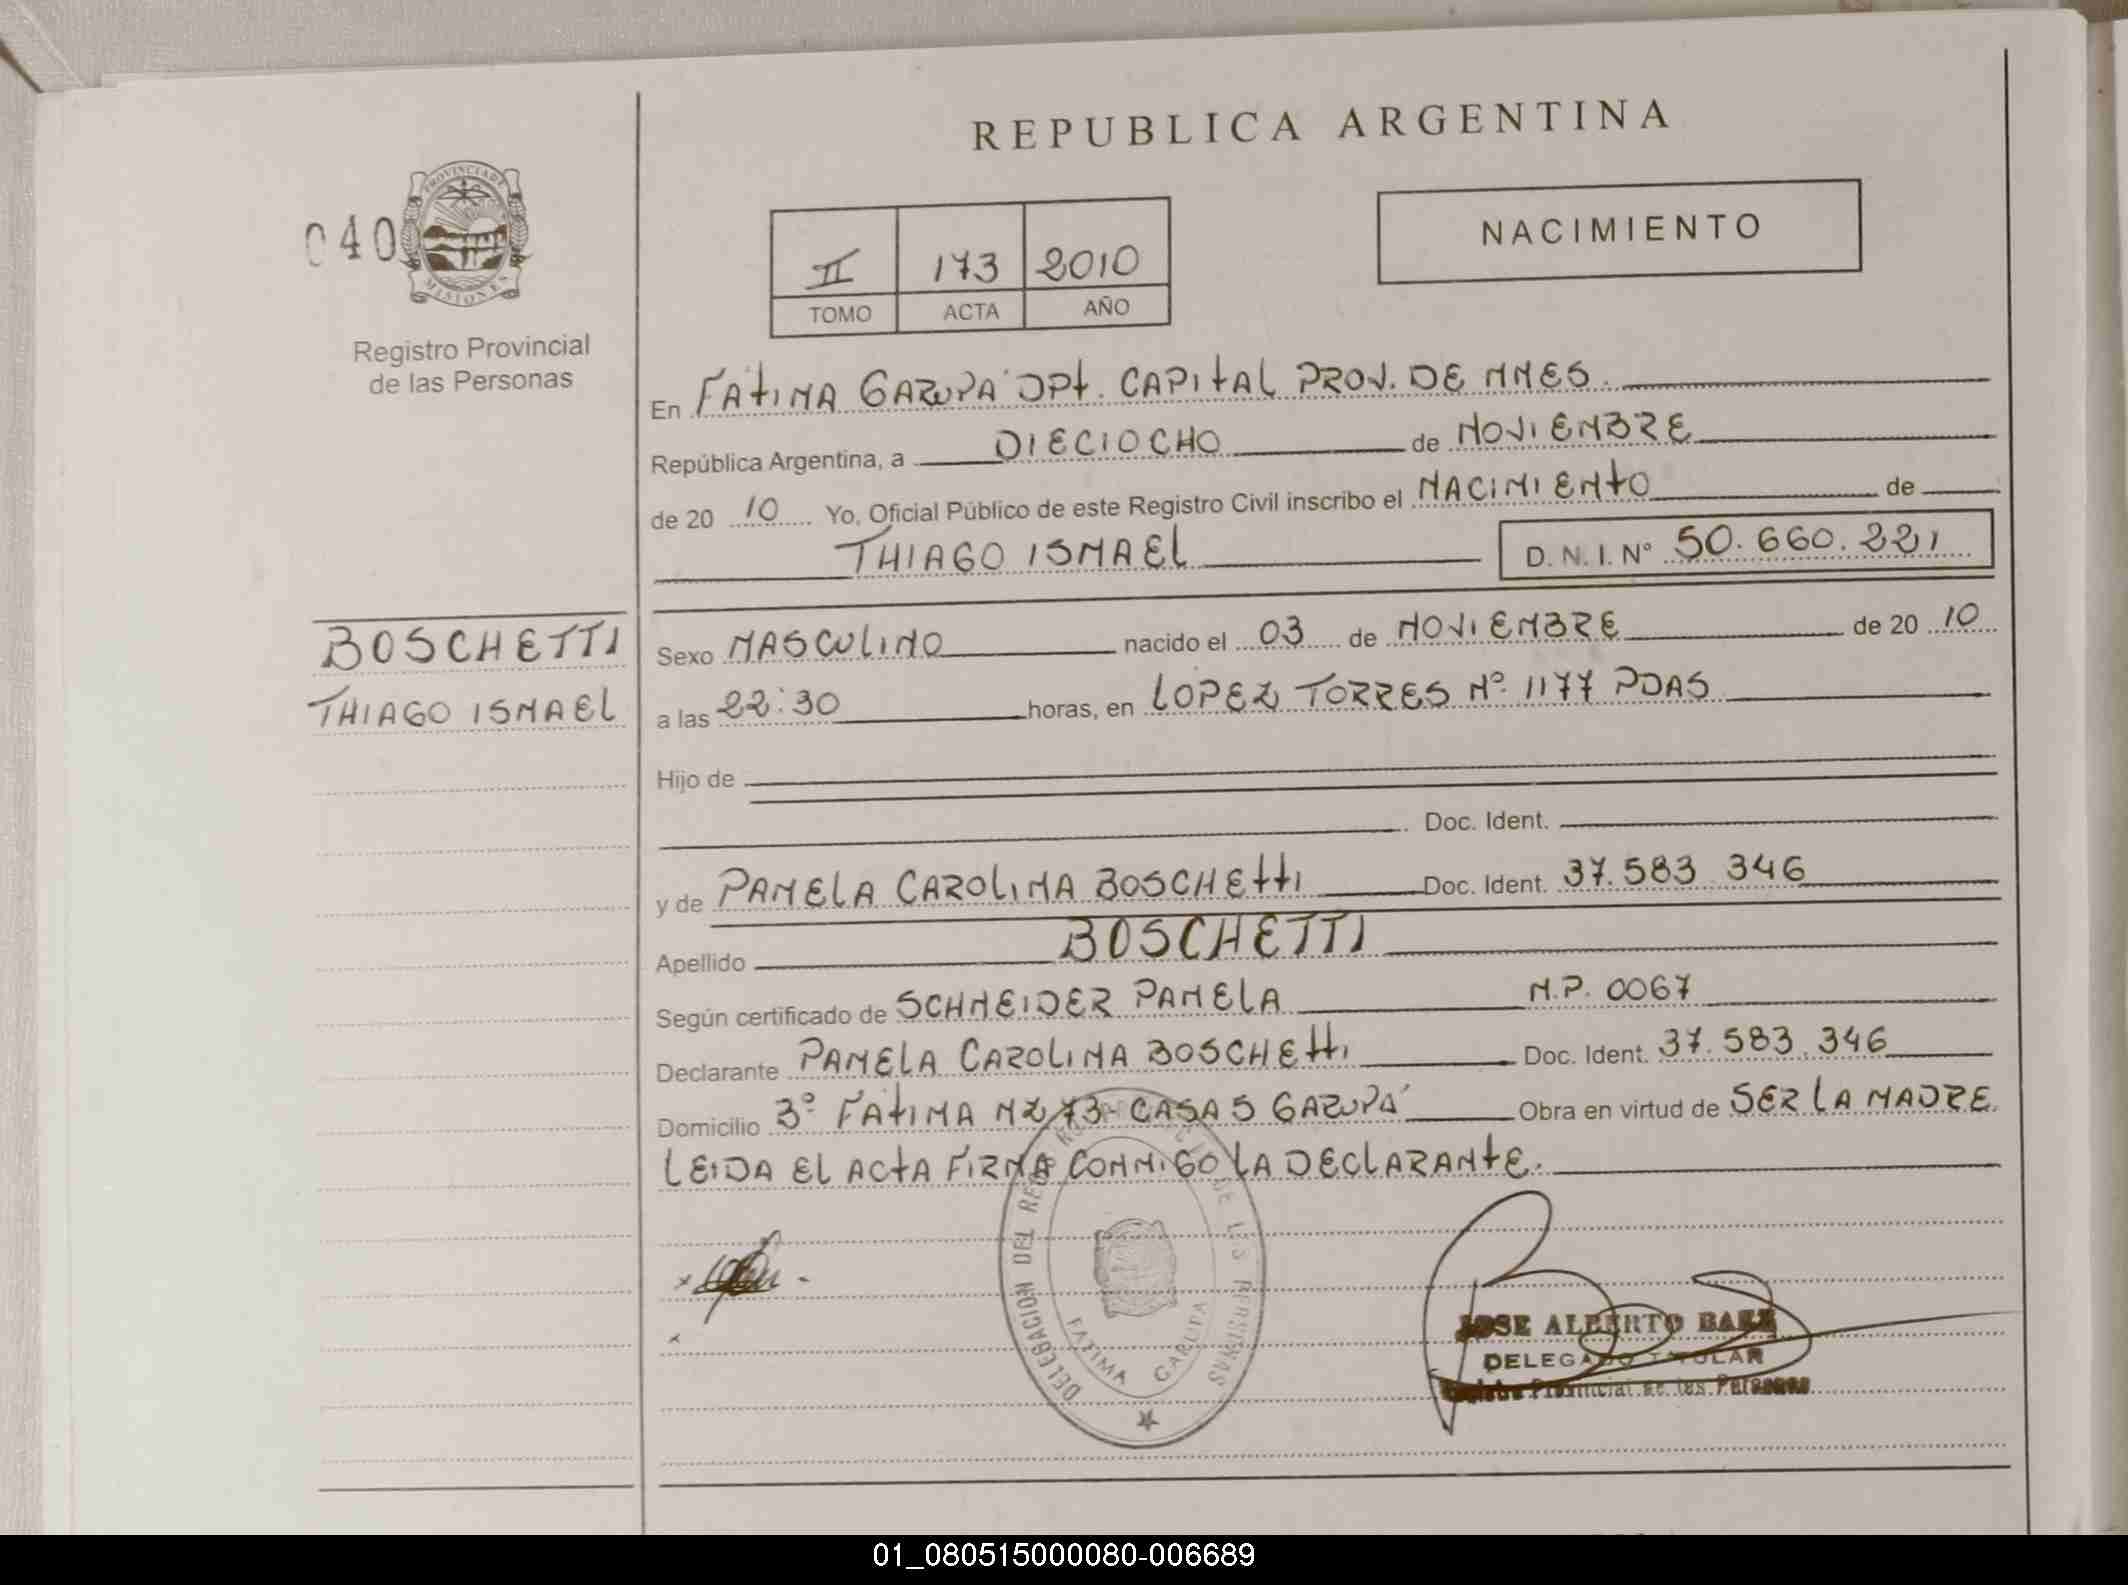 REPUBLICA ARGENTINA
040
PROVINCIA DE
MISIONES
Registro Provincial
de las Personas
II 173 2010
TOMO ACTA AÑO
NACIMIENTO
En FATIMA GARUPA DPT. CAPITAL PROV. DE MNES.
República Argentina, a DIECIOCHO de NOVIEMBRE
de 20 10 Yo, Oficial Público de este Registro Civil inscribo el NACIMIENTO de
THIAGO ISMAEL D. N. I. N° 50.660.221
BOSCHETTI
THIAGO ISMAEL
Sexo MASCULINO nacido el 03 de NOVIEMBRE de 20 10
a las 22:30 horas, en LOPEZ TORRES Nº 1177 PDAS
Hijo de
Doc. Ident.
y de PAMELA CAROLINA BOSCHETTI Doc. Ident. 37.583.346
Apellido BOSCHETTI
Según certificado de SCHNEIDER PAMELA M.P. 0067
Declarante PAMELA CAROLINA BOSCHETTI Doc. Ident. 37.583.346
Domicilio Bº FATIMA MZ 73- CASA 5 GARUPÁ Obra en virtud de SER LA MADRE.
LEIDA EL ACTA FIRMA CONMIGO LA DECLARANTE.
DELEGACION DEL REGISTRO PROVINCIAL DE LAS PERSONAS
FATIMA GARUPA
JOSE ALBERTO BAEZ
DELEGADO TITULAR
Registro Provincial de las Personas
01_080515000080-006689